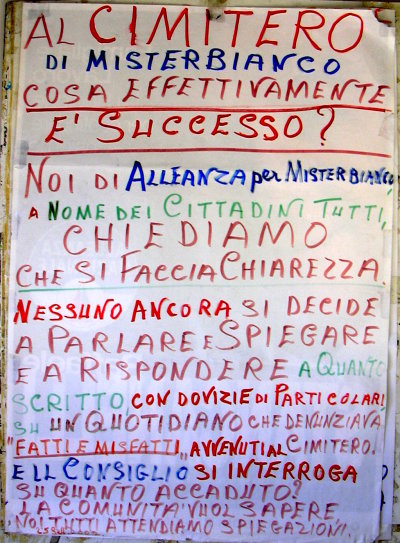 AL CIMITERO
DI MISTERBIANCO
COSA EFFETTIVAMENTE
E' SUCCESSO?
NOI DI ALLEANZA per MISTERBIANCO,
A NOME DEI CITTADINI TUTTI,
CHIEDIAMO
CHE SI FACCIA CHIAREZZA.
NESSUNO ANCORA SI DECIDE
A PARLARE E SPIEGARE
E A RISPONDERE A QUANTO
SCRITTO, CON DOVIZIE DI PARTICOLARI,
SU UN QUOTIDIANO CHE DENUNZIAVA
"FATTI E MISFATTI" AVVENUTI AL CIMITERO.
E IL CONSIGLIO SI INTERROGA
SU QUANTO ACCADUTO?
LA COMUNITA' VUOL SAPERE
NOI TUTTI ATTENDIAMO SPIEGAZIONI.